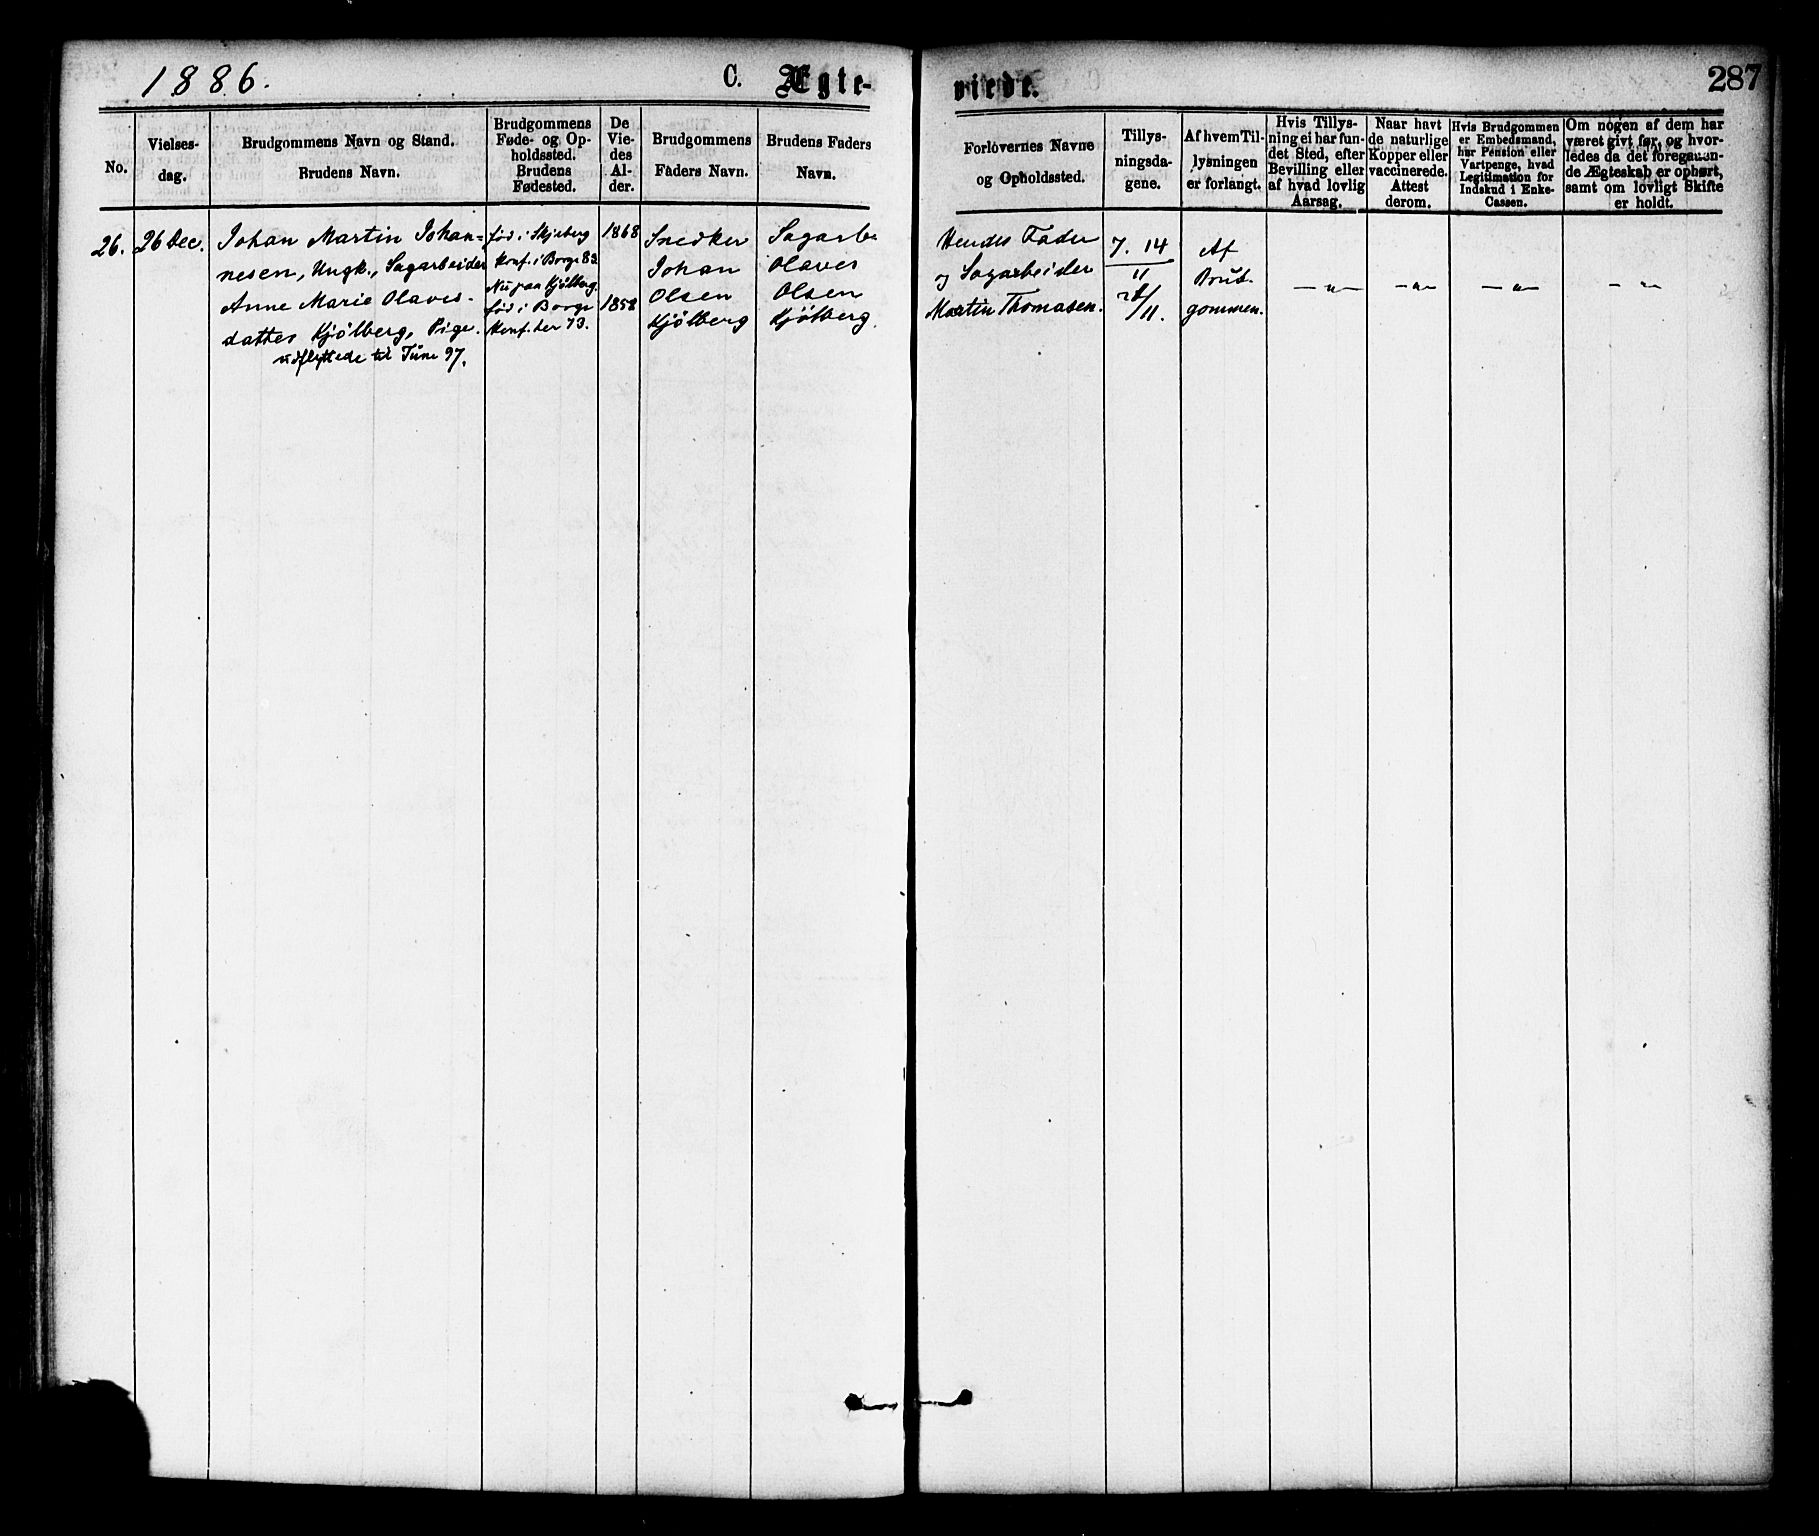 1886.
C. Ægte-
viede.
287
No.
Vielses-
dag.
Brudgommens Navn og Stand.
Brudens Navn.
Brudgommens
Føde- og Op-
holdssted.
Brudens
Fødested.
De
Vie-
des
Al-
der.
Brudgommens
Faders Navn.
Brudens Faders
Navn.
Forlovernes Navne
og Opholdssted.
Tillys-
ningsda-
gene.
Af hvem Til-
lysningen
er forlangt.
Hvis Tillys-
ning ei har fun-
det Sted, efter
Bevilling eller
af hvad lovlig
Aarsag.
Naar havt
de naturlige
Kopper eller
vaccinerede.
Attest
derom.
Hvis Brudgommen
er Embedsmand,
har Pension eller
Vartpenge, hvad
Legitimation for
Indskud i Enke-
Cassen.
Om nogen af dem har
været givt før, og hvor-
ledes da det foregaaen-
de Ægteskab er ophørt,
samt om lovligt Skifte
er holdt.
26.
26 Dec.
Johan Martin Johan-
nesen, Ungk., Sagarbeider
Anne Marie Olaves-
datter Kjölberg, Pige.
udflyttede til Tune 97.
född i Skjeberg
konf. i Borge 83.
Nu paa Kjölberg.
född i Borge
konf. her 73.
1868
1858
Snedker
Johan
Olsen
Kjölberg
Sagarb.
Olaves
Olsen
Kjölberg.
Hendes Fader
og Sagarbeider
Martin Thomasen.
7. 14
11
28/11.
Af
Brud-
gommen.
— " —
— " —
— " —
— " —